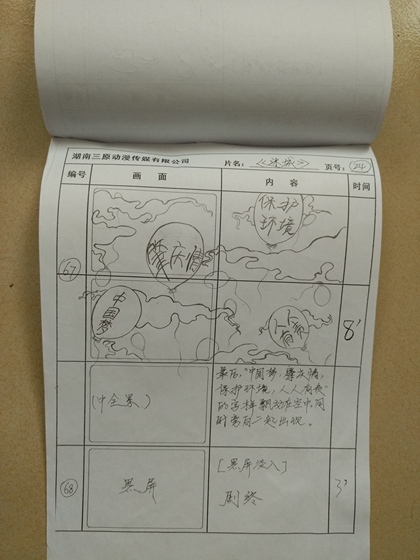 湖南三原动漫传媒有限公司 片名: 页号: 24
编号 画面 内容 时间
保护
环境
肇庆情
67
中国梦
人人
有责
8'
最后,"中国梦,肇庆情,
保护环境,人人有责"
(中全景)
的字样飘动在空中,同
时
一起出现。
[黑屏淡入]
68 黑屏
剧终
3'